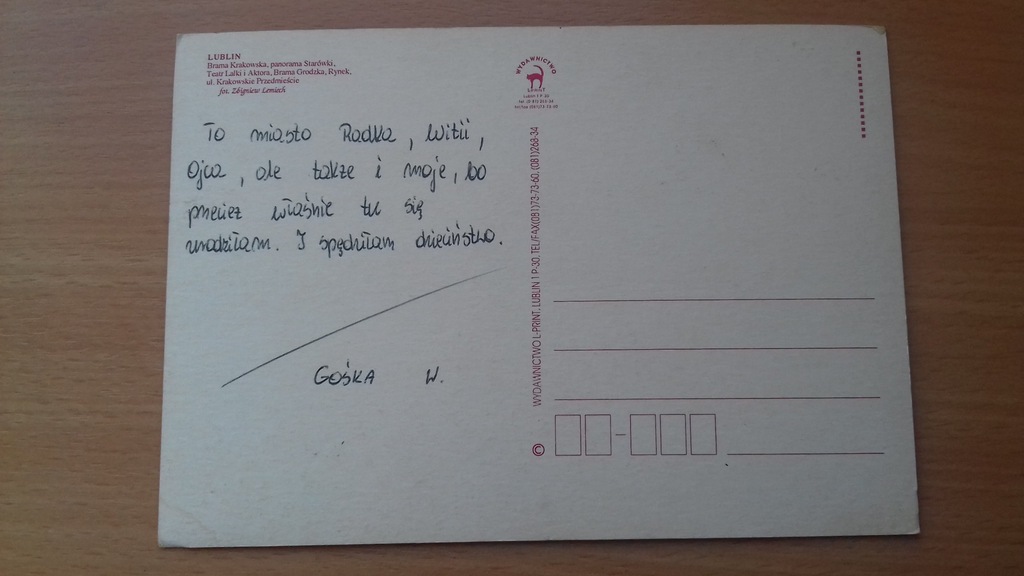 LUBLIN
Brama Krakowska, panorama Starówki,
Teatr Lalki i Aktora, Brama Grodzka, Rynek,
ul. Krakowskie Przedmieście
fot. Zbigniew Lemiech
To miasto Radka, Witii,
Ojca, ale także i moje, bo
przecież właśnie tu się
urodziłam. I spędziłam dzieciństwo.
GOŚKA W.
WYDAWNICTWO
L-PRINT
WYDAWNICTWO L-PRINT, LUBLIN 1 P-30, TEL/FAX(081)73-73-60, (081)268-34
©